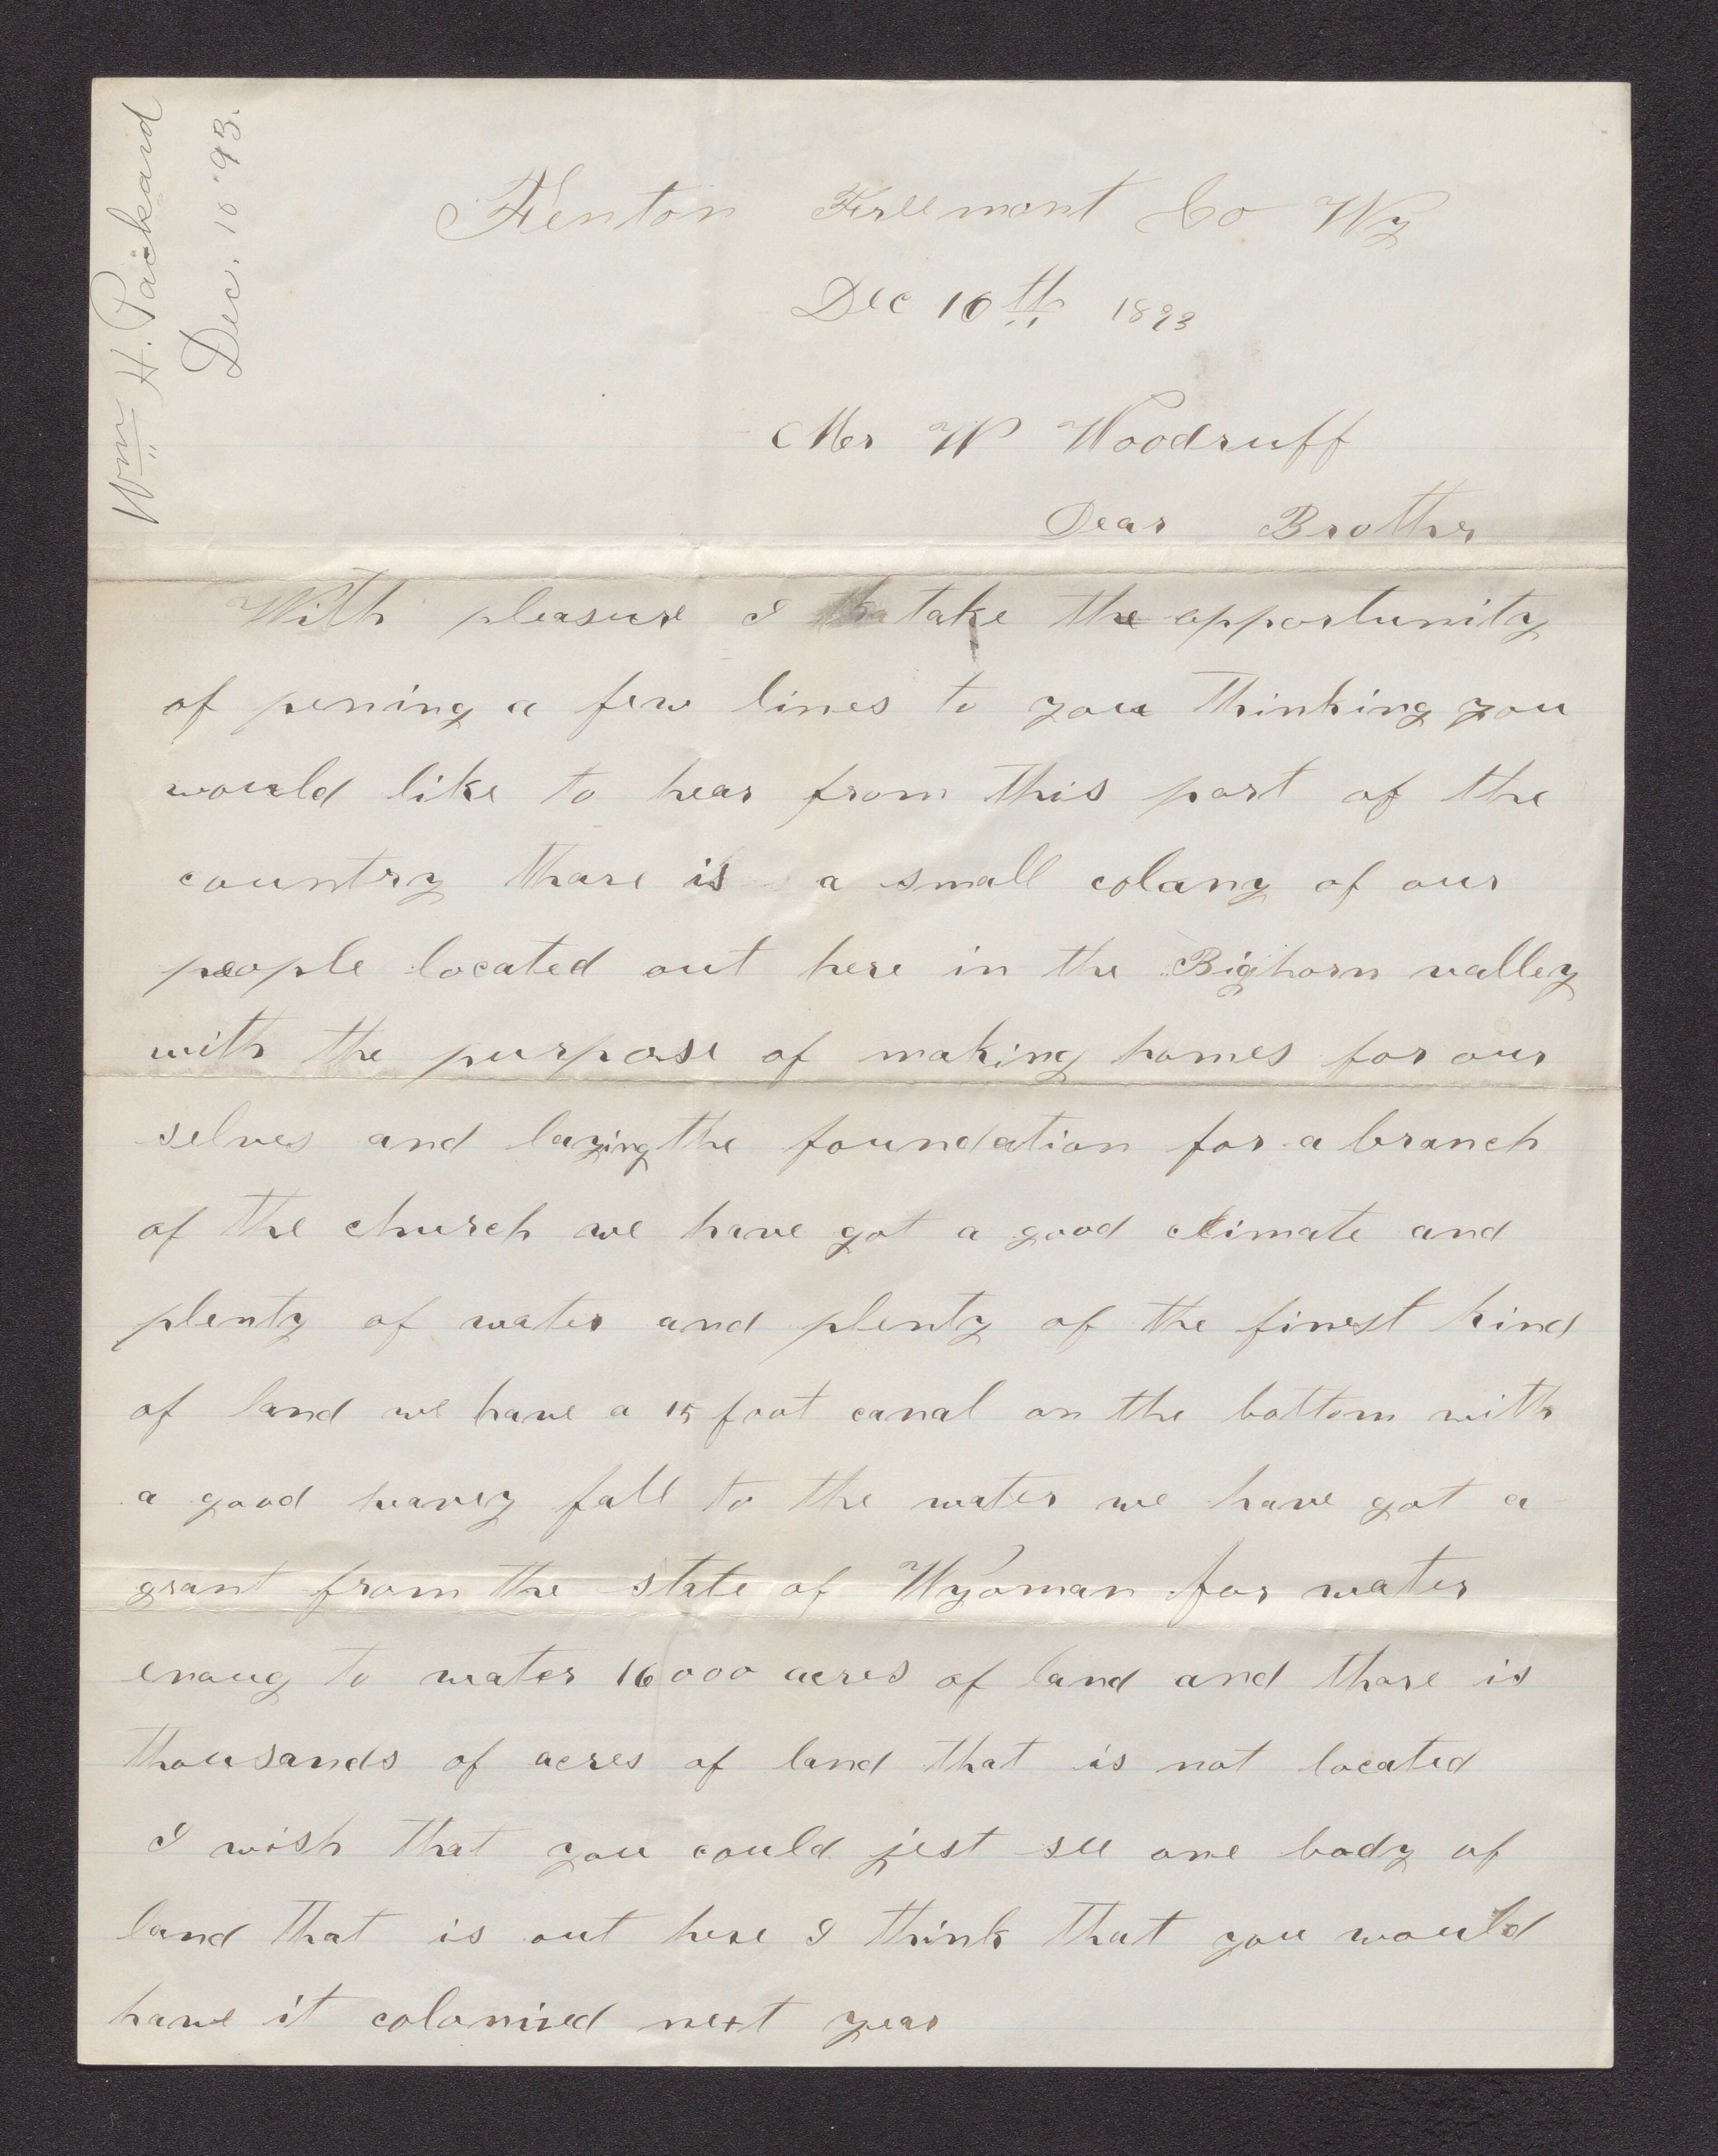 Wm H. Packard
Dec. 10 '93.
Fenton Freemont Co Wy
Dec 10th 1893
Mr W Woodruff
Dear Brother
With pleasure I take the opportunity
of pening a few lines to you thinking you
would like to hear from this part of the
country thare is a small colany of our
people located out here in the Bighorn valley
with the purpose of making homes for our
selves and laying the foundation for a branch
of the church we have got a good climate and
plenty of water and plenty of the finest kind
of land we have a 15 foot canal on the bottom with
a good heavey fall to the water we have got a
grant from the state of Wyoman for water
enoug to water 16000 acres of land and thare is
thousands of acres of land that is not located
I wish that you could jest see one body of
land that is out here I think that you would
have it colonised next year